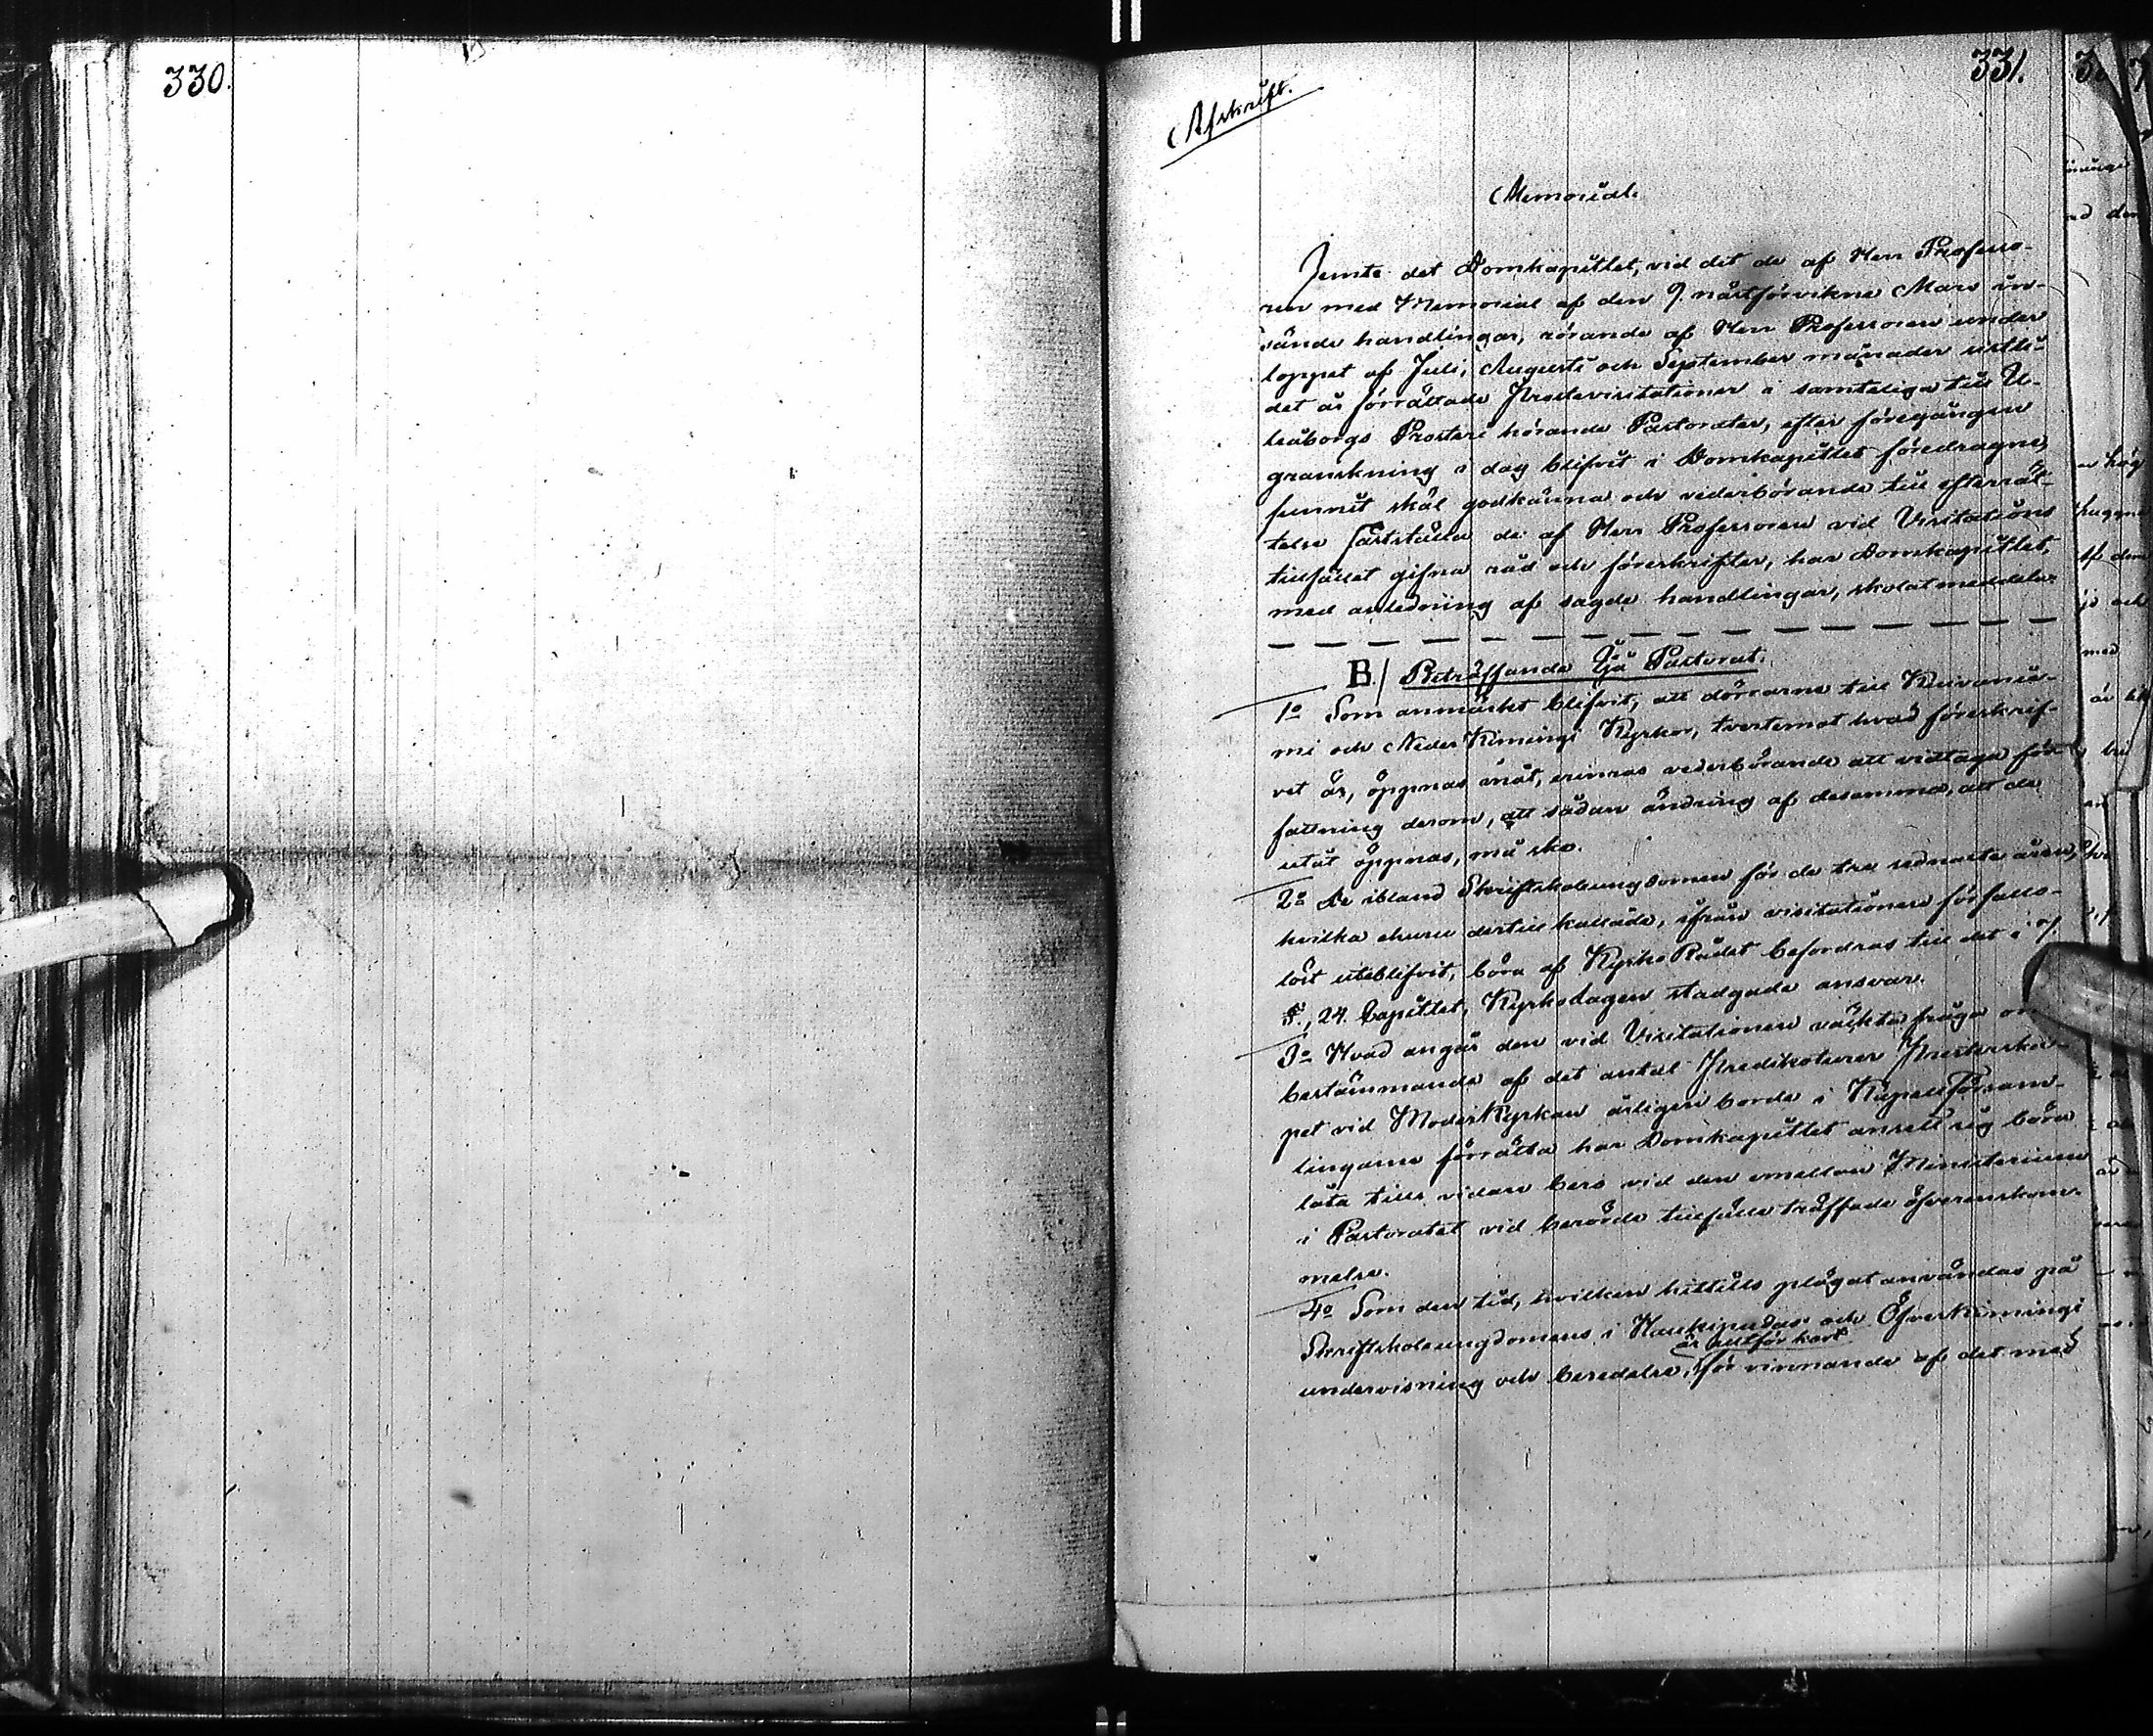 330.
331.
Afskrift.
Memorial.
Jemte det Domkapitlet, vid det de af Herr Professo-
ren med Memorial af den 9. nästförvikne Mars in-
sände handlingar, rörande af Herr Professoren under
loppet af Juli, Augusti och September månader sistli-
det år förrättade Prostevisitationer i samteliga till U-
leåborgs Prosteri hörande Pastorater, efter föregången
granskning i dag blifvit i Domkapitlet föredragne,
funnit skäl godkänna och vederbörande till efterrät-
telse fastställa de af Herr Professoren vid Visitations
tillfället gifna råd och föreskrifter, har Domkapitlet,
med anledning af sagde handlingar, skolat meddela:
B./ Beträffande Ijå Pastorat.
1o Som anmärkt blifvit, att dörrarne till Kuivanie-
mi och Neder Kimingi Kyrkor, tvertemot hvad föreskrif-
vet är, öppnas inåt, erinras vederbörande att vidtaga för
fattning derom, att sådan ändring af desamma, att de
utåt öppnas, må ske.
2o De ibland Skriftskoleungdomen för de tre sednaste åren,
hvilka ehuru dertill kallade, ifrån visitationen förfallo-
löst uteblifvit, böra af Kyrko Rådet befordras till det i
§., 24. Capitlet, Kyrkolagen stadgade ansvar.
3o Hvad angår den vid Visitationen väckta fråga om
bestämmande af det antal Predikoturer Presterska-
pet vid Moderkyrkan årligen borde i Kapell Försam-
lingarne förrätta har Domkapitlet ansett sig böra
låta tills vidare bero vid den emellan Ministerium
i Pastoratet vid berörde tillfälle träffade öfverenskom-
melse.
4o Som den tid, hvilken hittills plägat användas på
Skriftskoleungdomens i Haukipudas och Öfverkimingi
är alltför kort
undervisning och beredelse, för vinnande af det med